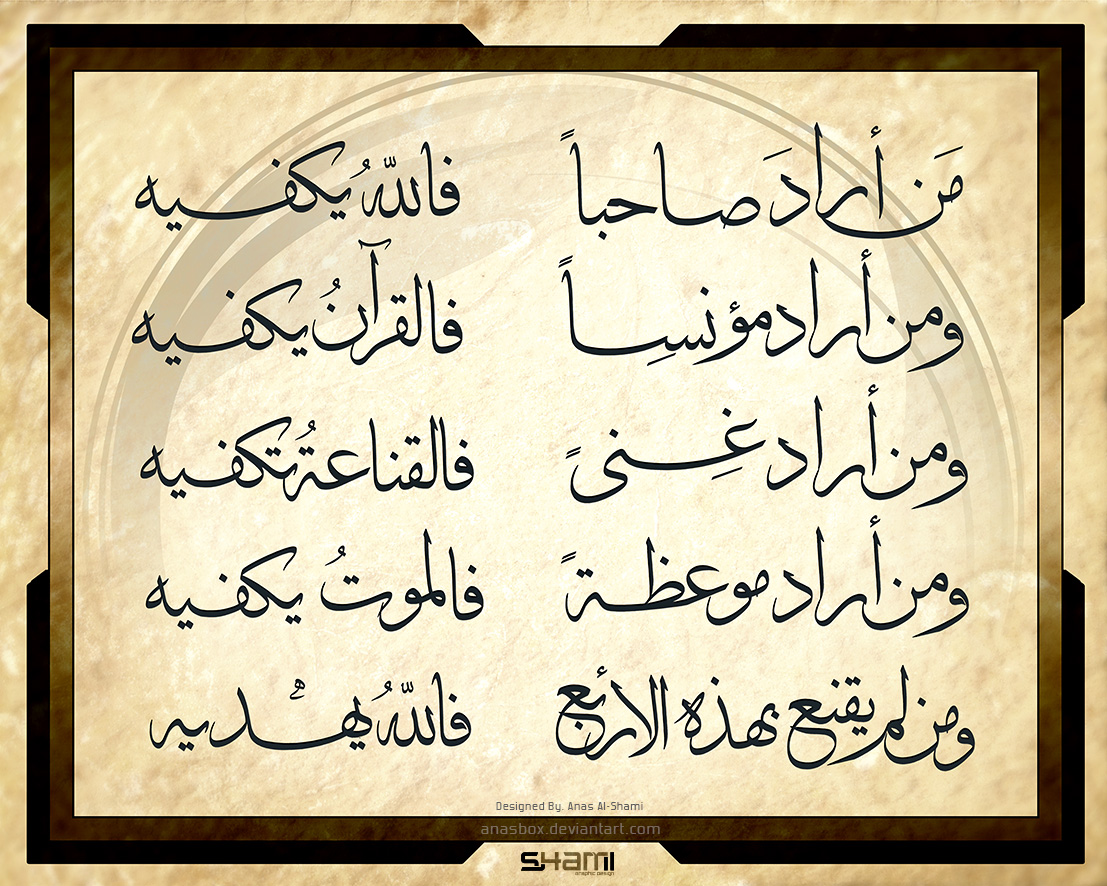 مَن أراد صاحباً فاللهُ يكفيه
ومن أراد مؤنسِاً فالقرآنُ يكفيه
ومن أراد غِنىً فالقناعةُ تكفيه
ومن أراد موعظةً فالموتُ يكفيه
ومن لم يقنع بهذه الأربع فاللهُ يهديه
Designed By. Anas Al-Shami
anasbox.deviantart.com
SHAMI
graphic design